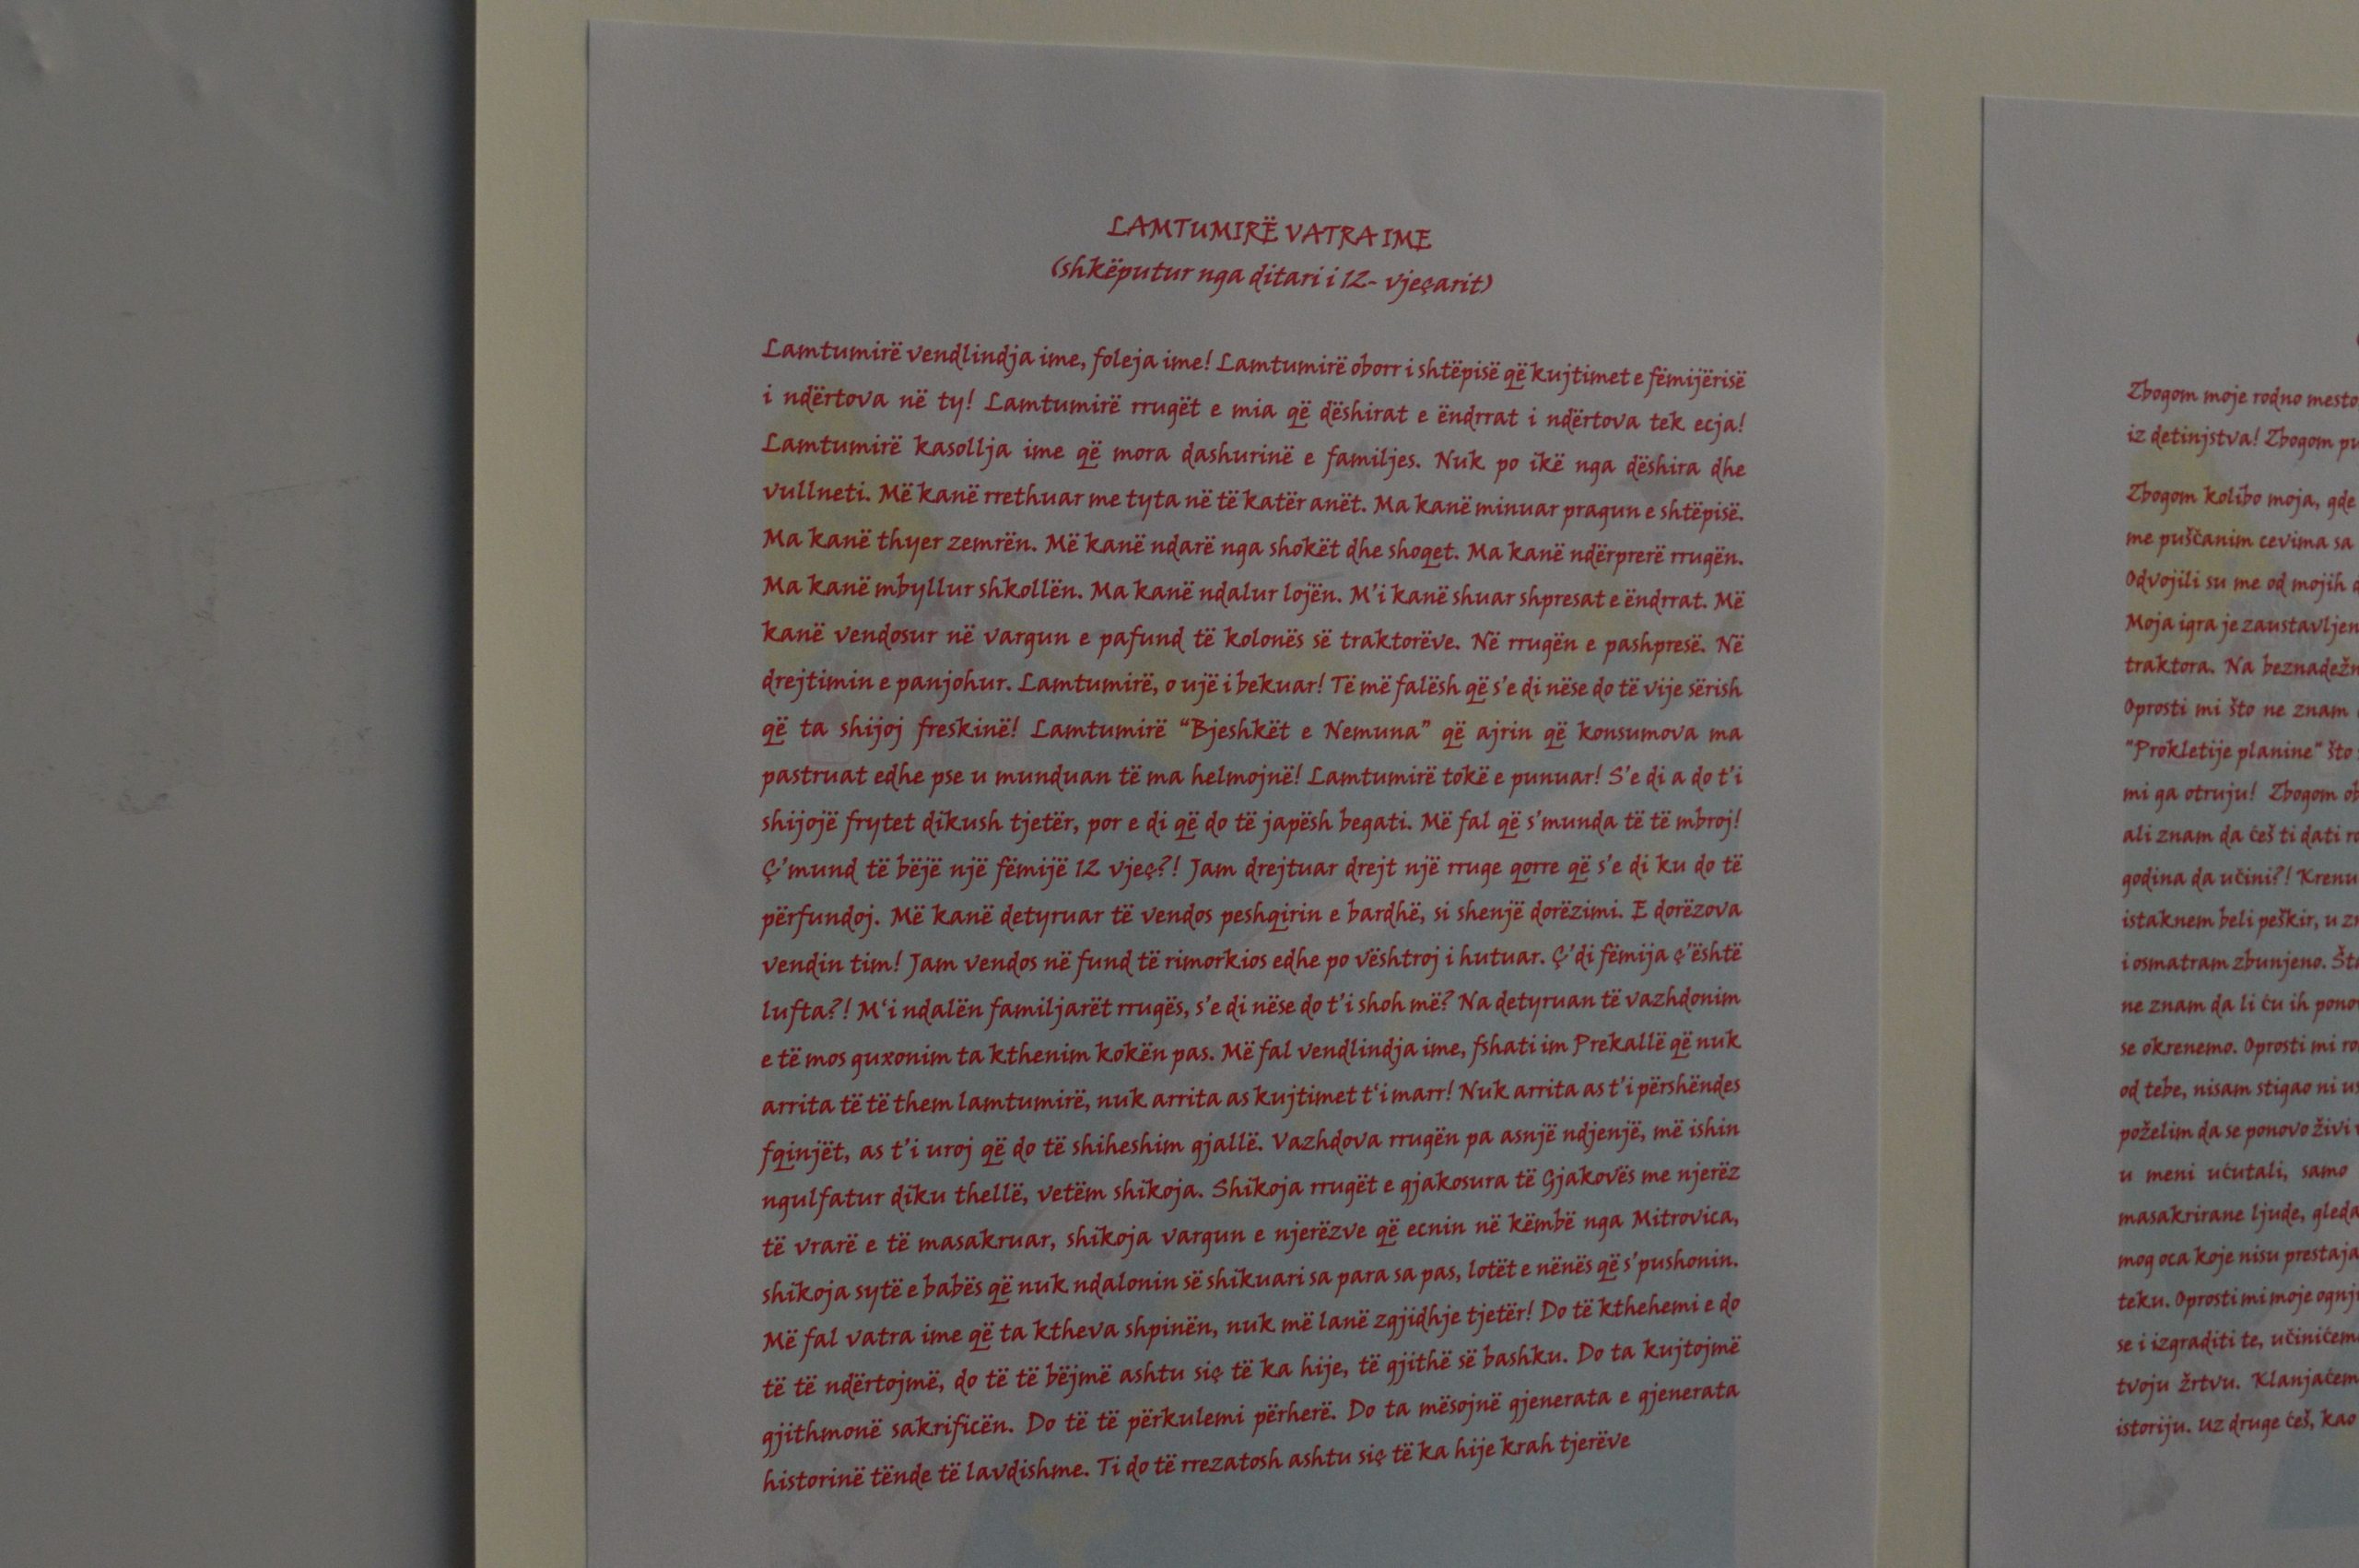 LAMTUMIRË VATRA IME
(shkëputur nga ditari i 12- vjeçarit)
Lamtumirë vendlindja ime, foleja ime! Lamtumirë oborr i shtëpisë që kujtimet e fëmijërisë
i ndërtova në ty! Lamtumirë rrugët e mia që dëshirat e ëndrrat i ndërtova tek ecja!
Lamtumirë kasollja ime që mora dashurinë e familjes. Nuk po ikë nga dëshira dhe
vullneti. Më kanë rrethuar me tyta në të katër anët. Ma kanë minuar pragun e shtëpisë.
Ma kanë thyer zemrën. Më kanë ndarë nga shokët dhe shoqet. Ma kanë ndërprerë rrugën.
Ma kanë mbyllur shkollën. Ma kanë ndalur lojën. M'i kanë shuar shpresat e ëndrrat. Më
kanë vendosur në vargun e pafund të kolonës së traktorëve. Në rrugën e pashpresë. Në
drejtimin e panjohur. Lamtumirë, o ujë i bekuar! Të më falësh që s'e di nëse do të vije sërish
që ta shijoj freskinë! Lamtumirë “Bjeshkët e Nemuna” që ajrin që konsumova ma
pastruat edhe pse u munduan të ma helmojnë! Lamtumirë tokë e punuar! S'e di a do t'i
shijojë frytet dikush tjetër, por e di që do të japësh begati. Më fal që s'munda të të mbroj!
Ç'mund të bëjë një fëmijë 12 vjeç?! Jam drejtuar drejt një rruge qorre që s'e di ku do të
përfundoj. Më kanë detyruar të vendos peshqirin e bardhë, si shenjë dorëzimi. E dorëzova
vendin tim! Jam vendos në fund të rimorkios edhe po vështroj i hutuar. Ç'di fëmija ç'është
lufta?! M‘i ndalën familjarët rrugës, s'e di nëse do t'i shoh më? Na detyruan të vazhdonim
e të mos guxonim ta kthenim kokën pas. Më fal vendlindja ime, fshati im Prekallë që nuk
arrita të të them lamtumirë, nuk arrita as kujtimet t‘i marr! Nuk arrita as t'i përshëndes
fqinjët, as t'i uroj që do të shiheshim gjallë. Vazhdova rrugën pa asnjë ndjenjë, më ishin
ngulfatur diku thellë, vetëm shikoja. Shikoja rrugët e gjakosura të Gjakovës me njerëz
të vrarë e të masakruar, shikoja vargun e njerëzve që ecnin në këmbë nga Mitrovica,
shikoja sytë e babës që nuk ndalonin së shikuari sa para sa pas, lotët e nënës që s'pushonin.
Më fal vatra ime që ta ktheva shpinën, nuk më lanë zgjidhje tjetër! Do të kthehemi e do
të të ndërtojmë, do të të bëjmë ashtu siç të ka hije, të gjithë së bashku. Do ta kujtojmë
gjithmonë sakrificën. Do të të përkulemi përherë. Do ta mësojnë gjenerata e gjenerata
historinë tënde të lavdishme. Ti do të rrezatosh ashtu siç të ka hije krah tjerëve
Zbogom moje rodno mesto
iz detinjstva! Zbogom
Zbogom kolibo moja, gde
me puščanim cevima sa
Odvojili su me od mojih
Moja igra je zaustavljen
traktora. Na
Oprosti mi što ne znam
"Prokletije planine" što
mi ga otruju! Zbogom
ali znam da ćeš ti dati
godina da učini?! Krenu
istaknem beli peškir, u
i osmatram zbunjeno.
ne znam da li ću ih
se okrenemo. Oprosti mi
od tebe, nisam stigao ni
poželim da se ponovo živi
u meni ućutali, samo
masakrirane ljude,
mog oca koje nisu
teku. Oprosti mi moje
se i izgraditi te,
tvoju žrtvu.
istoriju. Uz druge ćeš, kao